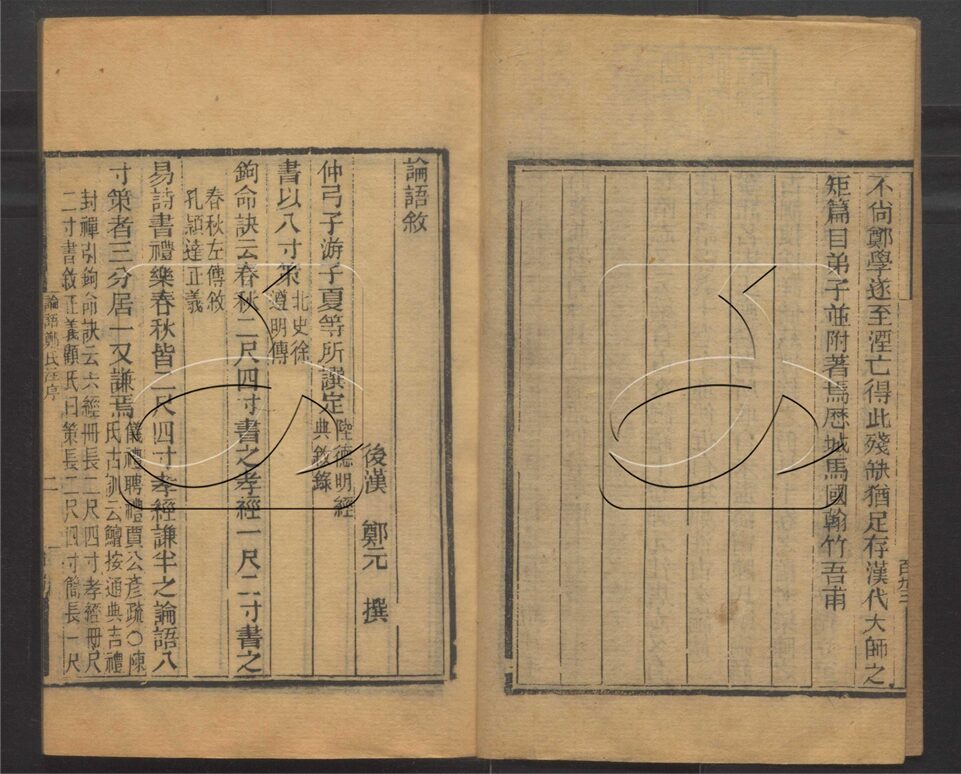 不尙鄭學遂至湮亡得此殘缺猶足存漢代大師之
矩篇目弟子並附著焉歷城馬國翰竹吾甫
論語敘
後漢 鄭元 撰
仲弓子游子夏等所譔定陸德明經典敘錄
書以八寸策北史徐遵明傳
鉤命訣云春秋二尺四寸書之孝經一尺二寸書之
春秋左傳敘孔穎達正義
易詩書禮樂春秋皆二尺四寸孝經謙半之論語八
寸策者三分居一又謙焉儀禮聘禮賈公彥疏○陳氏古訓云鱣按通典吉禮
封禪引鉤命訣云六經冊長二尺四寸孝經冊尺二寸書敘正義顧氏曰策長二尺四寸簡長一尺
論語鄭氏注序
二